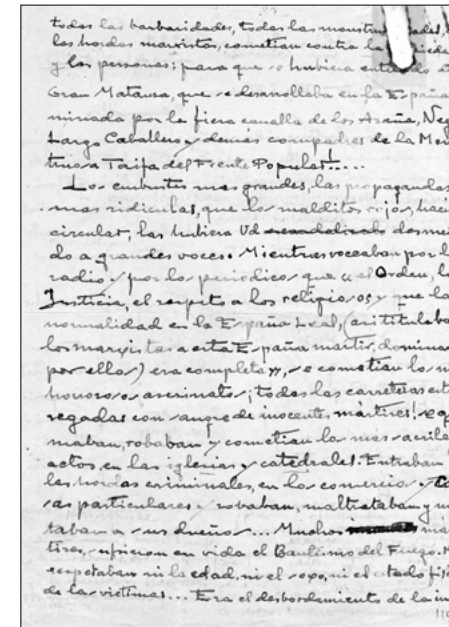 todas las barbaridades, todas las monstruosidades,
las hordas marxistas, cometian contra la
y las personas; para que se hubiera enterado
Gran Matanza, que se desarrollaba en la España
minada por la fiera canalla de los Azaña, Neg
Largo Caballero y demás compadres de la Mon
truosa Taifa del Frente Popular!...
Los embustes mas grandes, las propagandas
mas ridiculas, que los malditos rojos, hací
circular, las hubiera Vd desmen
do a grandes voces. Mientras voceaban por l
radio y por los periodicos que "el Orden, la
Justicia, el respeto a los religiosos y que la
normalidad en la España Leal, (asi titulaba
los marxistas a esta España martir, domina
por ellos) era completa", se cometian los m
horrorosos asesinatos; todas las carreteras est
regadas con sangre de inocentes mártires! se q
maban, robaban y cometian los mas sacrile
actos, en las iglesias y catedrales. Entraban
las hordas criminales, en los comercios y Ca
sas particulares y robaban, maltrataban y ma
taban a sus dueños... Muchos már
tires, sufrieron en vida el Bautismo del Fuego. N
respetaban ni la edad, ni el sexo, ni el estado físi
de las victimas... Era el desbordamiento de la in